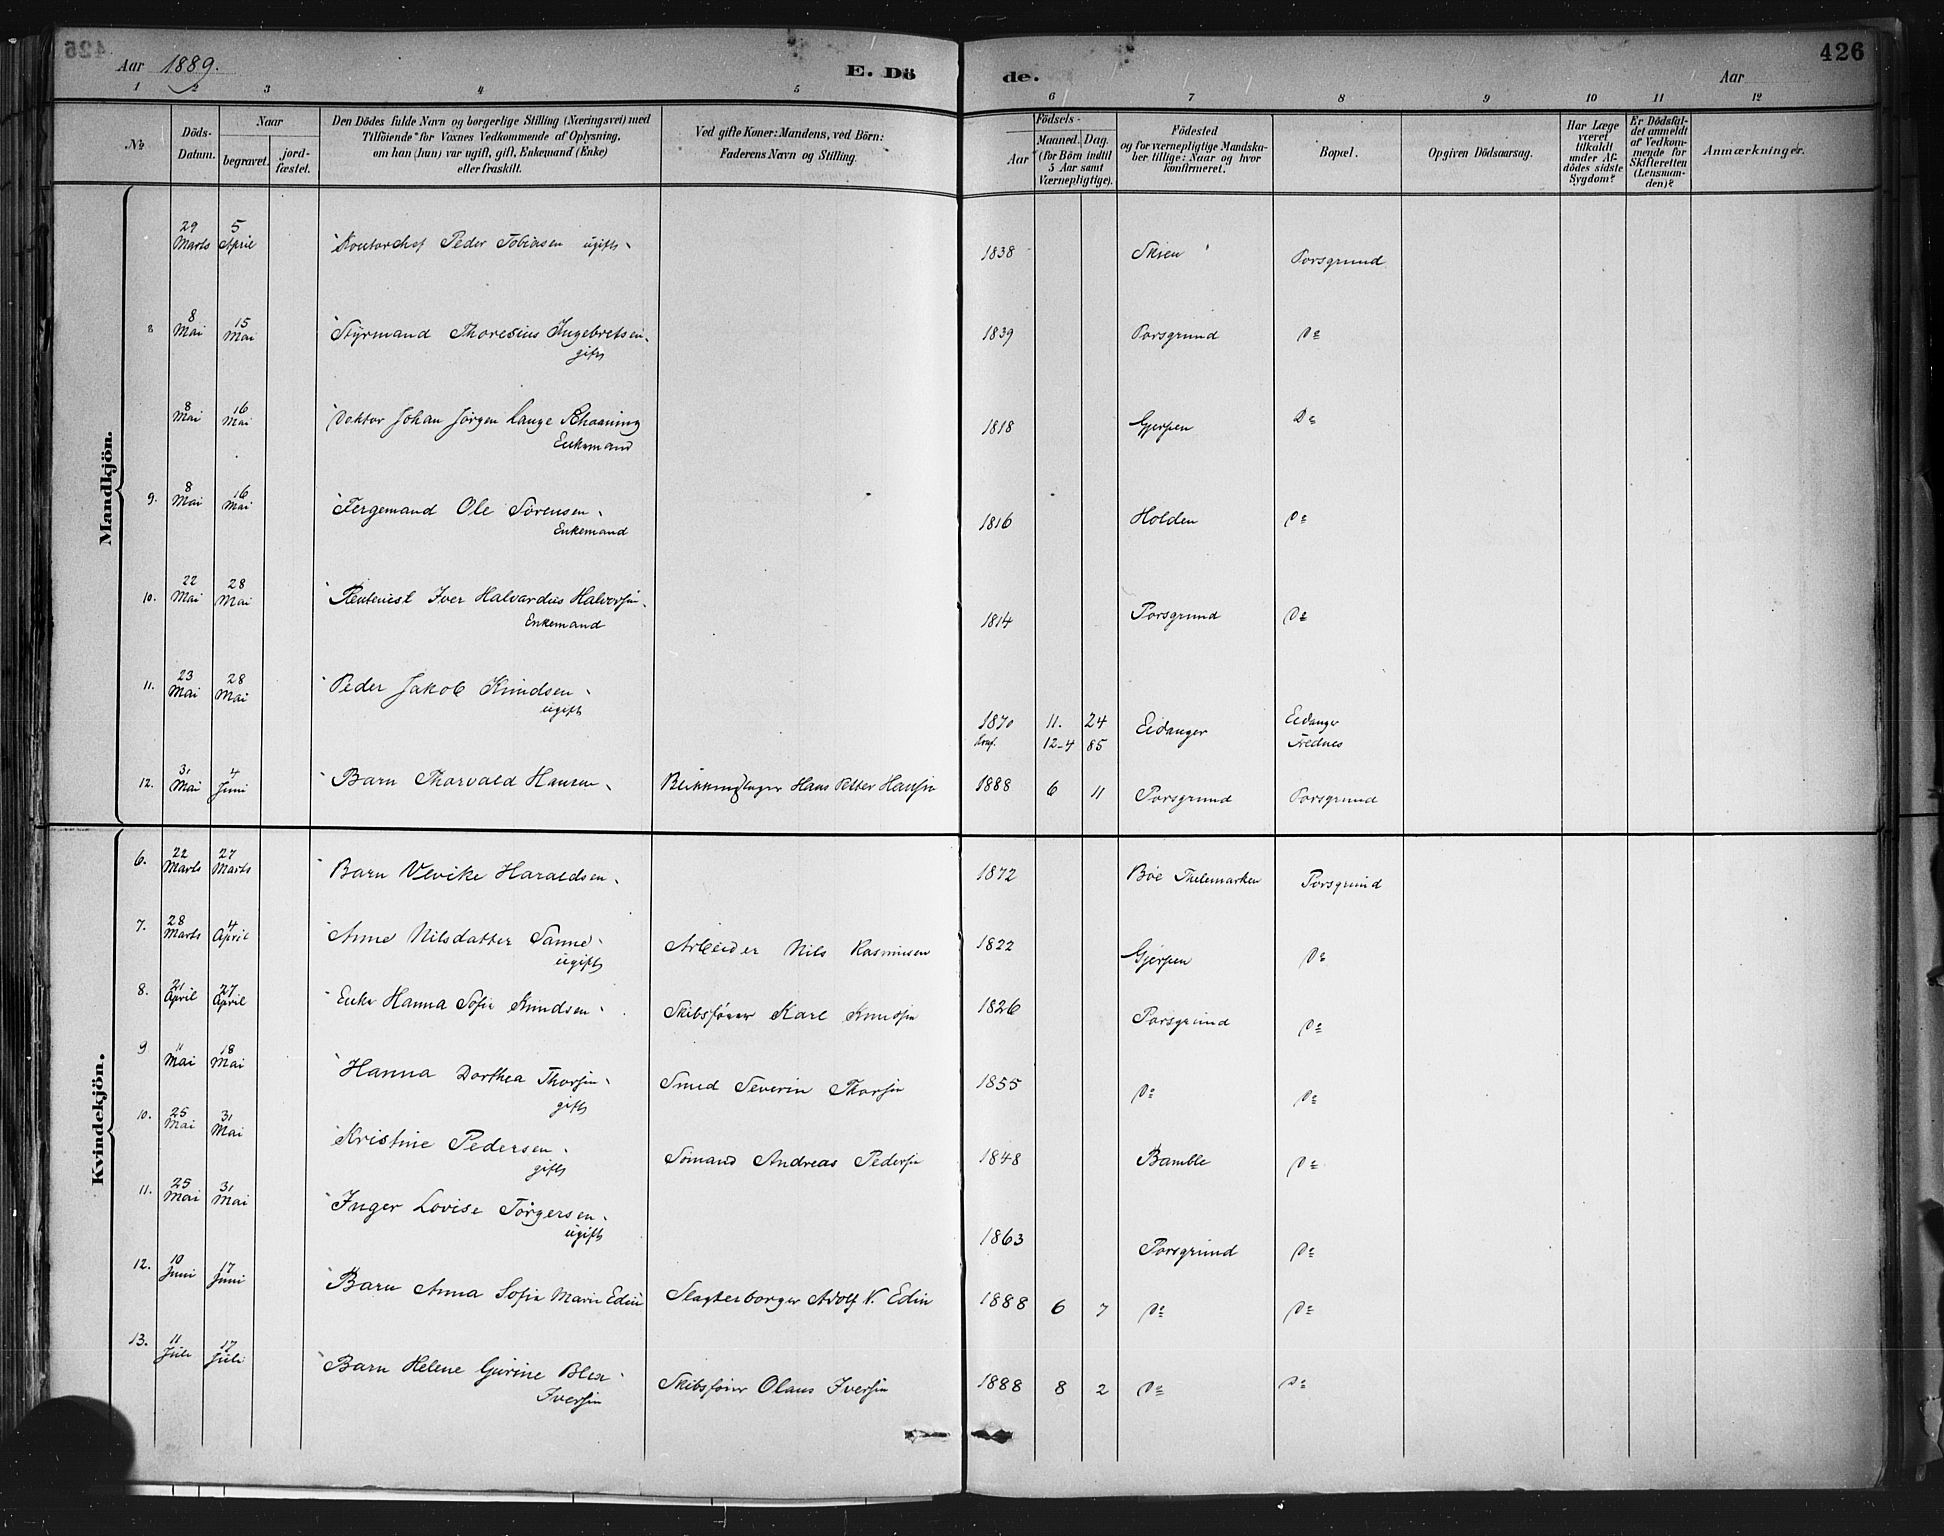 426
Aar 1889.
E. Dö de.
Aar
1 2 3 4 5 6 7 8 9 10 11 12
No
Döds-Datum.
Naar
begravet.
jord-fæstet.
Den Dödes fulde Navn og borgerlige Stilling (Næringsvei) med
Tilföiende for Voxnes Vedkommende af Oplysning,
om han (hun) var ugift, gift, Enkemand (Enke)
eller fraskilt.
Ved gifte Koner: Mandens, ved Börn:
Faderens Navn og Stilling.
Födsels-
Aar
Maaned. Dag.
(for Börn indtil
5 Aar samt
Værnepligtige).
Födested
og for værnepligtige Mandska-
ber tillige: Naar og hvor
konfirmeret.
Bopæl.
Opgiven Dödsaarsag.
Har Læge
været
tilkaldt
under Af-
dödes sidste
Sygdom?
Er Dödsfal-
det anmeldt
af Vedkom-
mende for
Skifteretten
(Lensman-
den)?
Anmærkninger.
Mandkjön.
29 Marts 5 April Kontorchef Peder Tobiasen ugift 1838 Skien Porsgrund
8 8 Mai 15 Mai Styrmand Thoresius Ingebretsen 1839 Porsgrund Do
gift
8 Mai 16 Mai Doktor Johan Jørgen Lange Schaaning 1818 Gjerpen Do
Enkemand
9. 8 Mai 16 Mai Fergemand Ole Sørensen 1816 Holden Do
Enkemand
10. 22 Mai 28 Mai Rentenist Iver Halvardus Halvorsen 1814 Porsgrund Do
Enkemand
11. 23 Mai 28 Mai Peder Jakob Knudsen
ugift
1870 11. 24 Eidanger Eidanger
Konf. 12-4 85 Frednes
12. 31 Mai 4 Juni Barn Thorvald Hansen Blikkenslager Hans Petter Hansen 1888 6 11 Porsgrund Porsgrund
Kvindekjön.
6. 22 Marts 27 Marts Barn Ulvike Haraldsen 1872 Bøe Thelemarken Porsgrund
7. 28 Marts 4 April Anne Nilsdatter Sanne Arbeider Nils Rasmusen 1822 Gjerpen Do
ugift
8. 21 April 27 April Enke Hanna Sofie Knudsen Skibsfører Karl Knudsen 1826 Porsgrund Do
9 11 Mai 18 Mai Hanna Dorthea Thorsen Smed Severin Thorsen 1855 Do Do
gift
10. 25 Mai 31 Mai Kristine Pedersen Sømand Andreas Pedersen 1848 Bamble Do
gift
11. 25 Mai 31 Mai Inger Lovise Jørgersen 1863 Porsgrund Do
ugift
12. 10 Juni 17 Juni Barn Anna Sofie Marie Edin Slagterborger Adolf V. Edin 1888 6 7 Do Do
13. 11 Juli 17 Juli Barn Helene Gurine Blex Skibsfører Olaus Iversen 1888 8 2 Do Do
Iversen